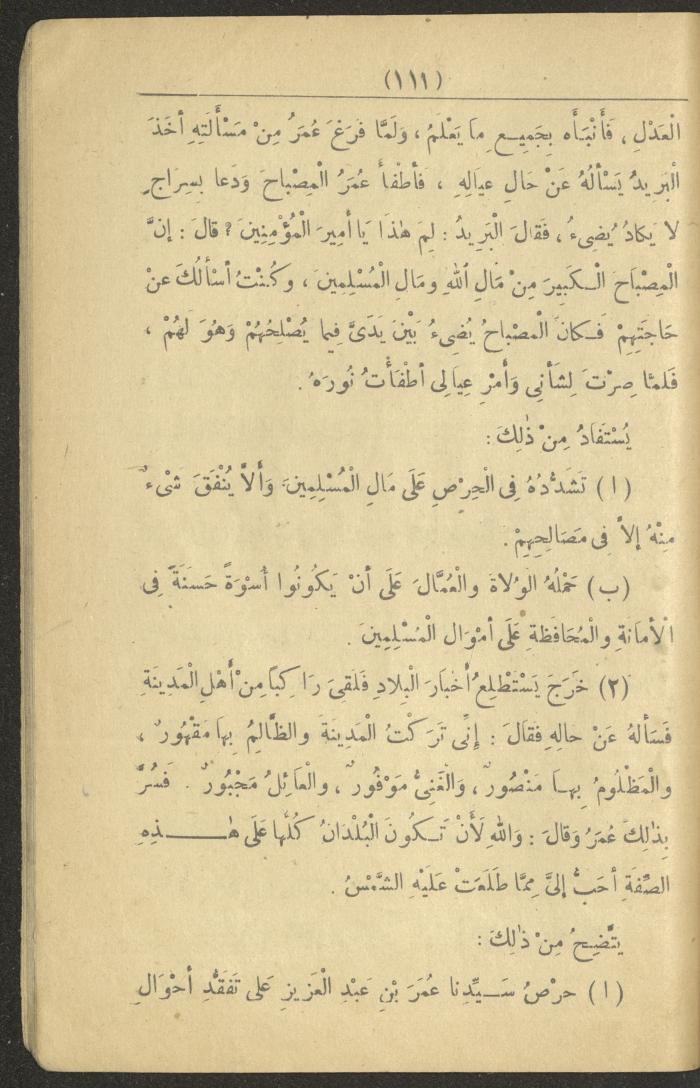 (١١١)
الْعَدْلِ ، فَأَنْبَأَه بِجَمِيعِ مَا يَعْلَمُ ، وَلَمَّا فَرَغَ عُمَرُ مِنْ مَسْأَلَتِهِ أَخَذَ
الْبَرِيدُ يَسْأَلُهُ عَنْ حَالِ عِيَالِهِ ، فَأَطْفَأَ عُمَرُ الْمِصْبَاحَ وَدَعا بِسِرَاجٍ
لا يَكادُ يُضِىءُ ، فَقالَ الْبَرِيدُ : لِمَ هٰذَا يَا أَمِيرَ الْمُؤْمِنِينَ ؟ قالَ : إنَّ
الْمِصْبَاحَ الْكَبِيرَ مِنْ مَالِ اللهِ ومَالِ الْمُسْلِمِينَ ، وكُنْتُ أَسْأَلُكَ عَنْ
حَاجَتِهِمْ فَكانَ الْمِصْبَاحُ يُضِىءُ بَيْنَ يَدَىَّ فِيما يُصْلِحُهُمْ وَهُوَ لَهُمْ ،
فَلَمَّا صِرْتَ لِشَأْنِى وَأَمْرِ عِيَالِى أَطْفَأْتُ نُورَهُ .
يُسْتَفَادُ مِنْ ذٰلِكَ :
(١) تَشَدُّدُهُ فِى الْحِرْصِ عَلَى مَالِ الْمُسْلِمِينَ وَأَلاَّ يُنْفَقَ شَىْءٌ
مِنْهُ إلاَّ فِى مَصَالِحِهِمْ .
(ب) حَمْلُهُ الوُلاةَ والْعُمَّالَ عَلَى أَنْ يَكُونُوا أُسْوَةً حَسَنَةً فِى
الْأَمانَةِ والْمُحَافَظَةِ عَلَى أَمْوَالِ الْمُسْلِمِينَ .
(٢) خَرَجَ يَسْتَطْلِعُ أَخْبَارَ الْبِلادِ فَلَقِىَ رَاكِباً مِنْ أَهْلِ الْمَدِينَةِ
فَسَأَلَهُ عَنْ حالِهِ فَقالَ : إنِّى تَرَكْتُ الْمَدِينَةَ والظَّالِمُ بِها مَقْهُورٌ ،
والْمَظْلُومُ بِهَا مَنْصُورٌ ، وَالْغَنِىُّ مَوْفُورٌ ، والْعَائِلُ مَجْبُورٌ . فَسُرَّ
بِذٰلِكَ عُمَرُ وَقالَ : وَاللهِ لَأَنْ تَكُونَ الْبُلْدَانُ كُلُّها عَلَى هٰذِهِ
الصِّفَةِ أَحَبُّ إلَىَّ مِمَّا طَلَعَتْ عَلَيْهِ الشَّمْسُ .
يَتَّضِحُ مِنْ ذٰلِكَ :
(١) حِرْصُ سَيِّدِنا عُمَرَ بْنِ عَبْدِ الْعَزِيزِ عَلَى تَفَقُّدِ أَحْوَالِ